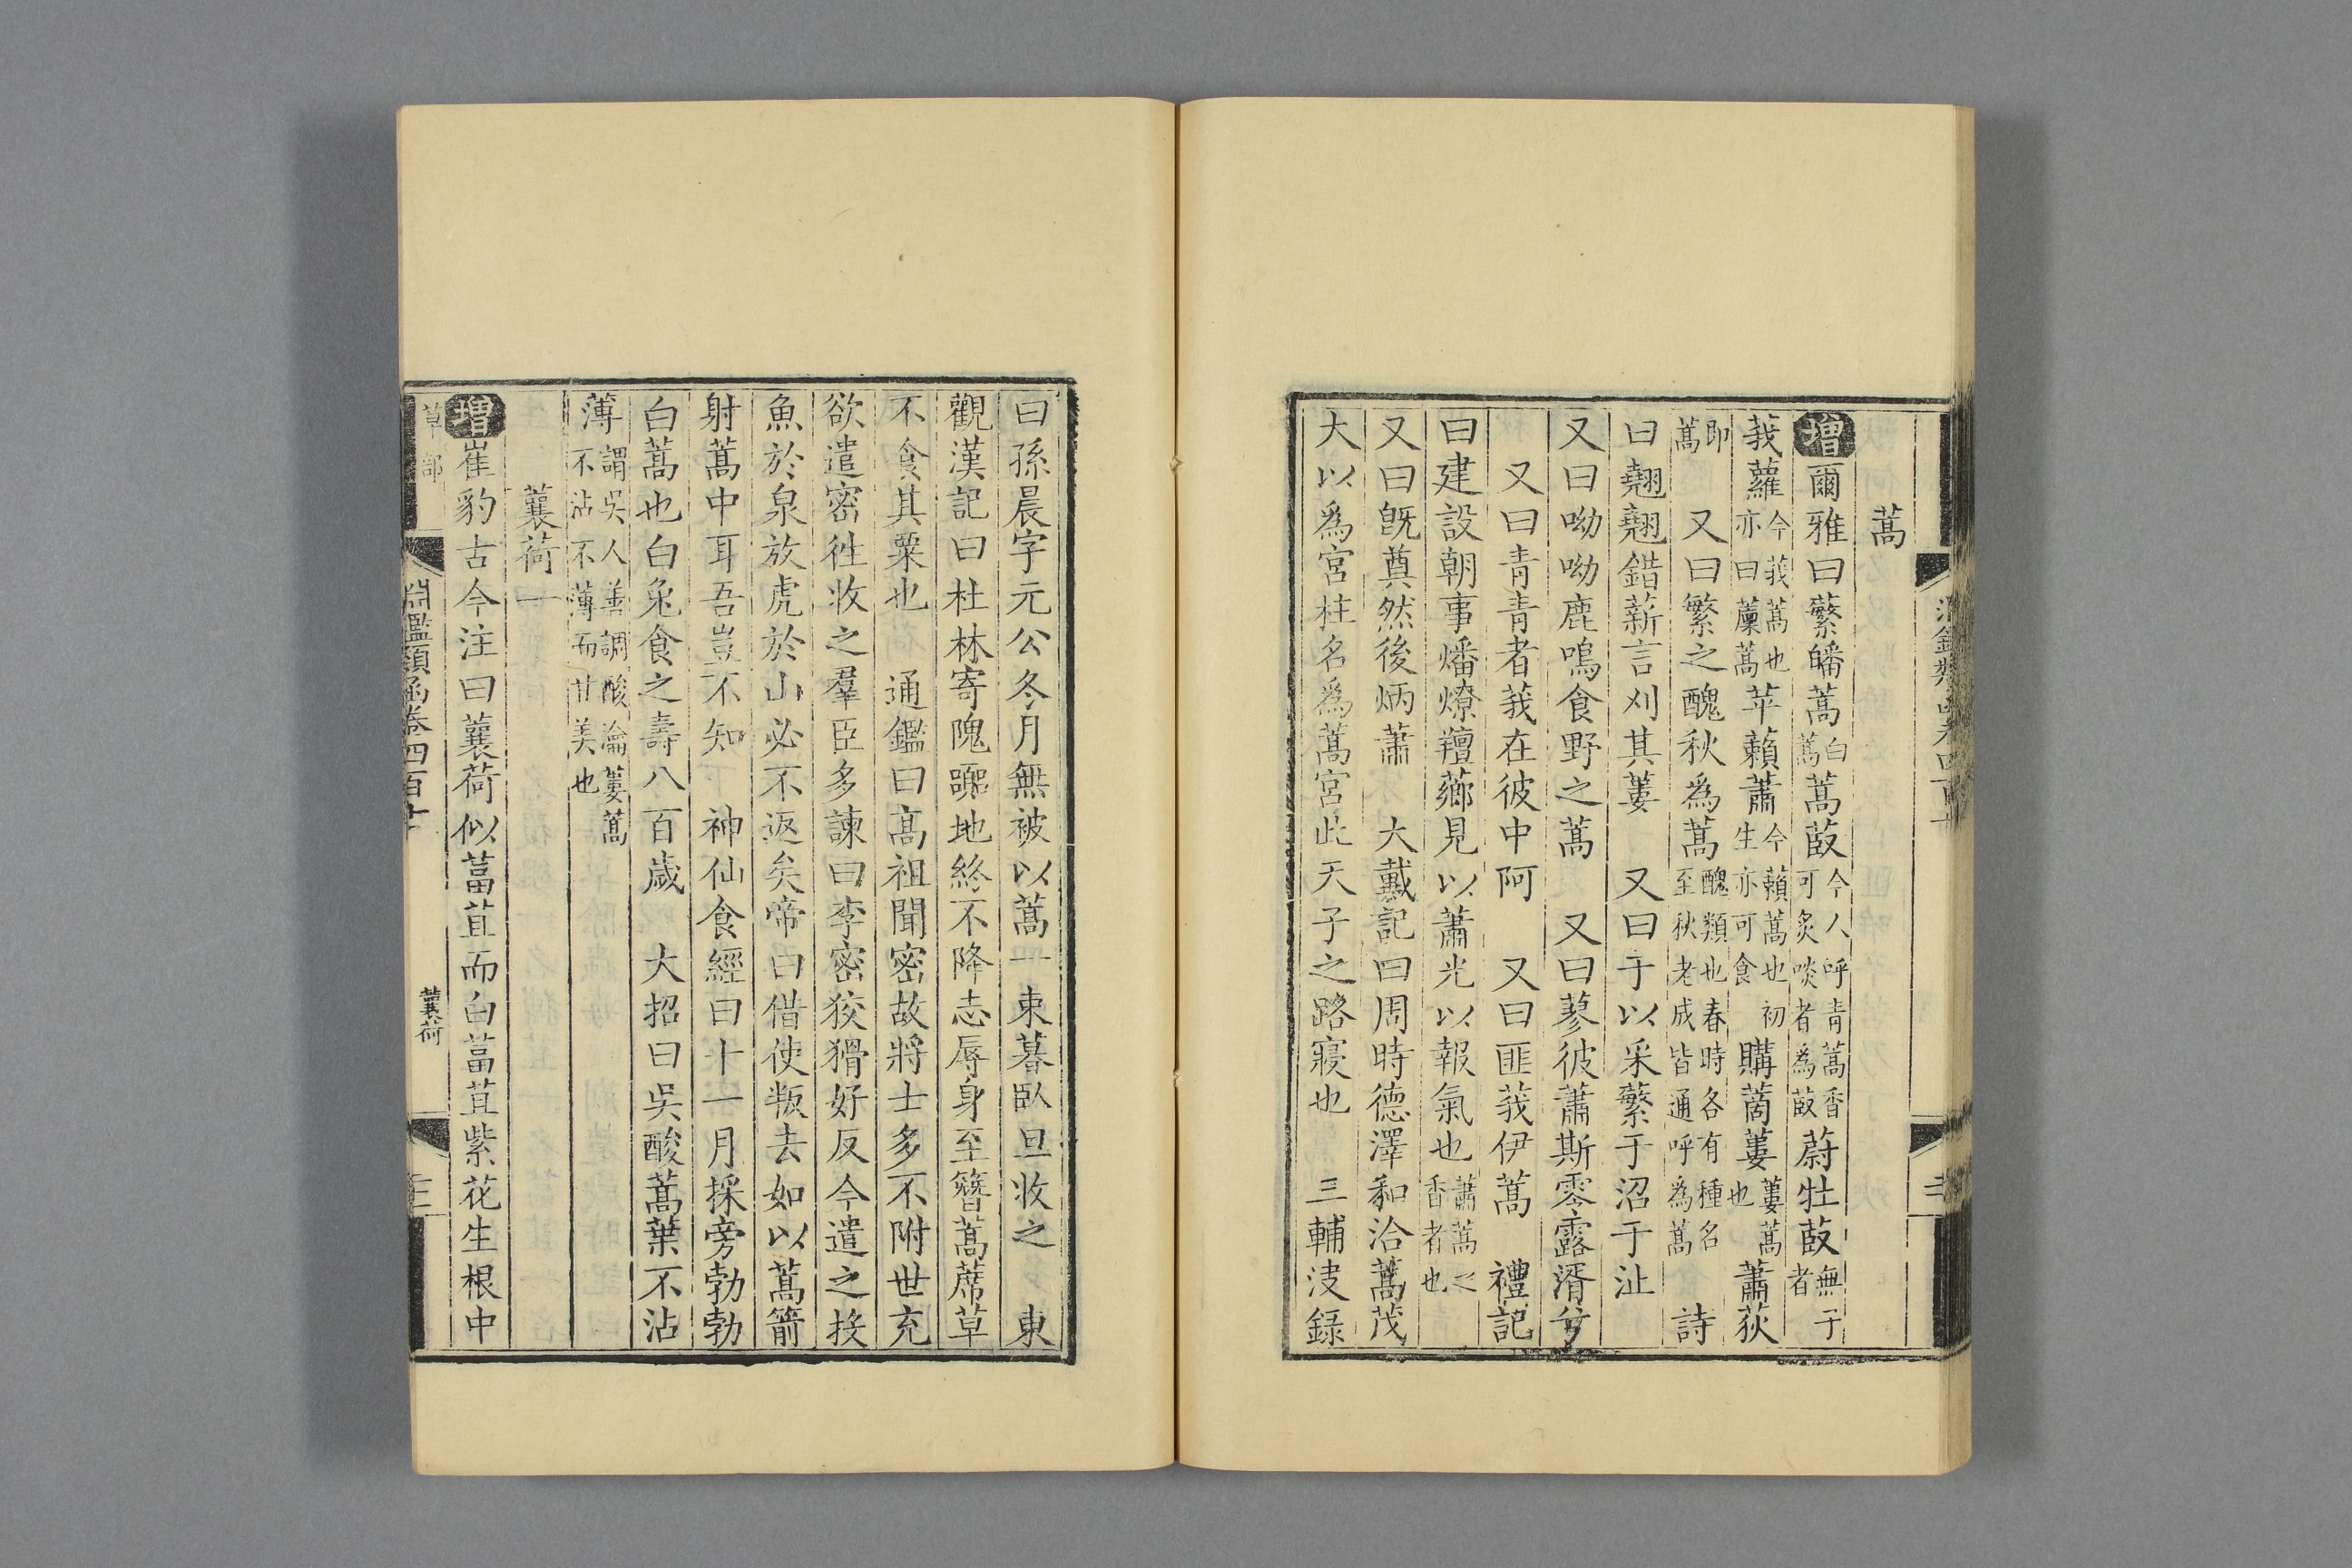 蒿
增爾雅曰蘩皤蒿白蒿蒿菣今人呼青蒿香可炙啖者為菣蔚牡菣無子者
莪蘿今莪蒿也亦曰䕲蒿苹藾蕭今藾蒿也初生亦可食購蔏蔞蔞蒿也蕭荻
即蒿　又曰繁之醜秋為蒿醜類也春時各有種名至秋老成皆通呼為蒿　詩
曰翹翹錯薪言刈其蔞　又曰于以采蘩于沼于沚
又曰呦呦鹿鳴食野之蒿　又曰蓼彼蕭斯零露湑兮
又曰青青者莪在彼中阿　又曰匪莪伊蒿　禮記
曰建設朝事燔燎羶薌見以蕭光以報氣也蕭蒿之香者也
又曰既奠然後炳蕭　大戴記曰周時德澤和洽蒿茂
大以為宮柱名為蒿宮此天子之路寢也　三輔決錄
曰孫晨字元公冬月無被以蒿一束暮臥旦收之　東
觀漢記曰杜林寄隗囂地終不降志辱身至簪蒿蓆草
不食其粟也　通鑑曰高祖聞密故將士多不附世充
欲遣密徃收之羣臣多諫曰李密狡猾好反今遣之投
魚於泉放虎於山必不返矣帝曰借使叛去如以蒿箭
射蒿中耳吾豈不知　神仙食經曰十一月採旁勃勃
白蒿也白兔食之壽八百歲　大招曰吳酸蒿蔞不沾
薄謂吳人善調酸瀹蔞蒿不沾不薄而甘美也
蘘荷一
增崔豹古今注曰蘘荷似葍苴而白葍苴紫花生根中
草部
淵鑑類函卷四百十
蘘荷